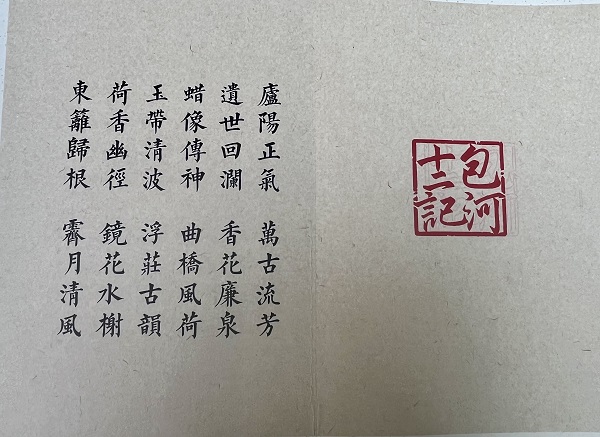 包河
十二記
廬陽正氣 萬古流芳
遺世回瀾 香花廉泉
蜡像傳神 曲橋風荷
玉帶清波 浮莊古韻
荷香幽徑 鏡花水榭
東籬歸根 霽月清風